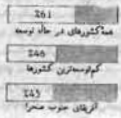 ٪۶۱
همهٔ کشورهای در حال توسعه
٪۴۶
کم‌توسعه‌ترین کشورها
٪۴۵
آفریقای جنوب صحرا